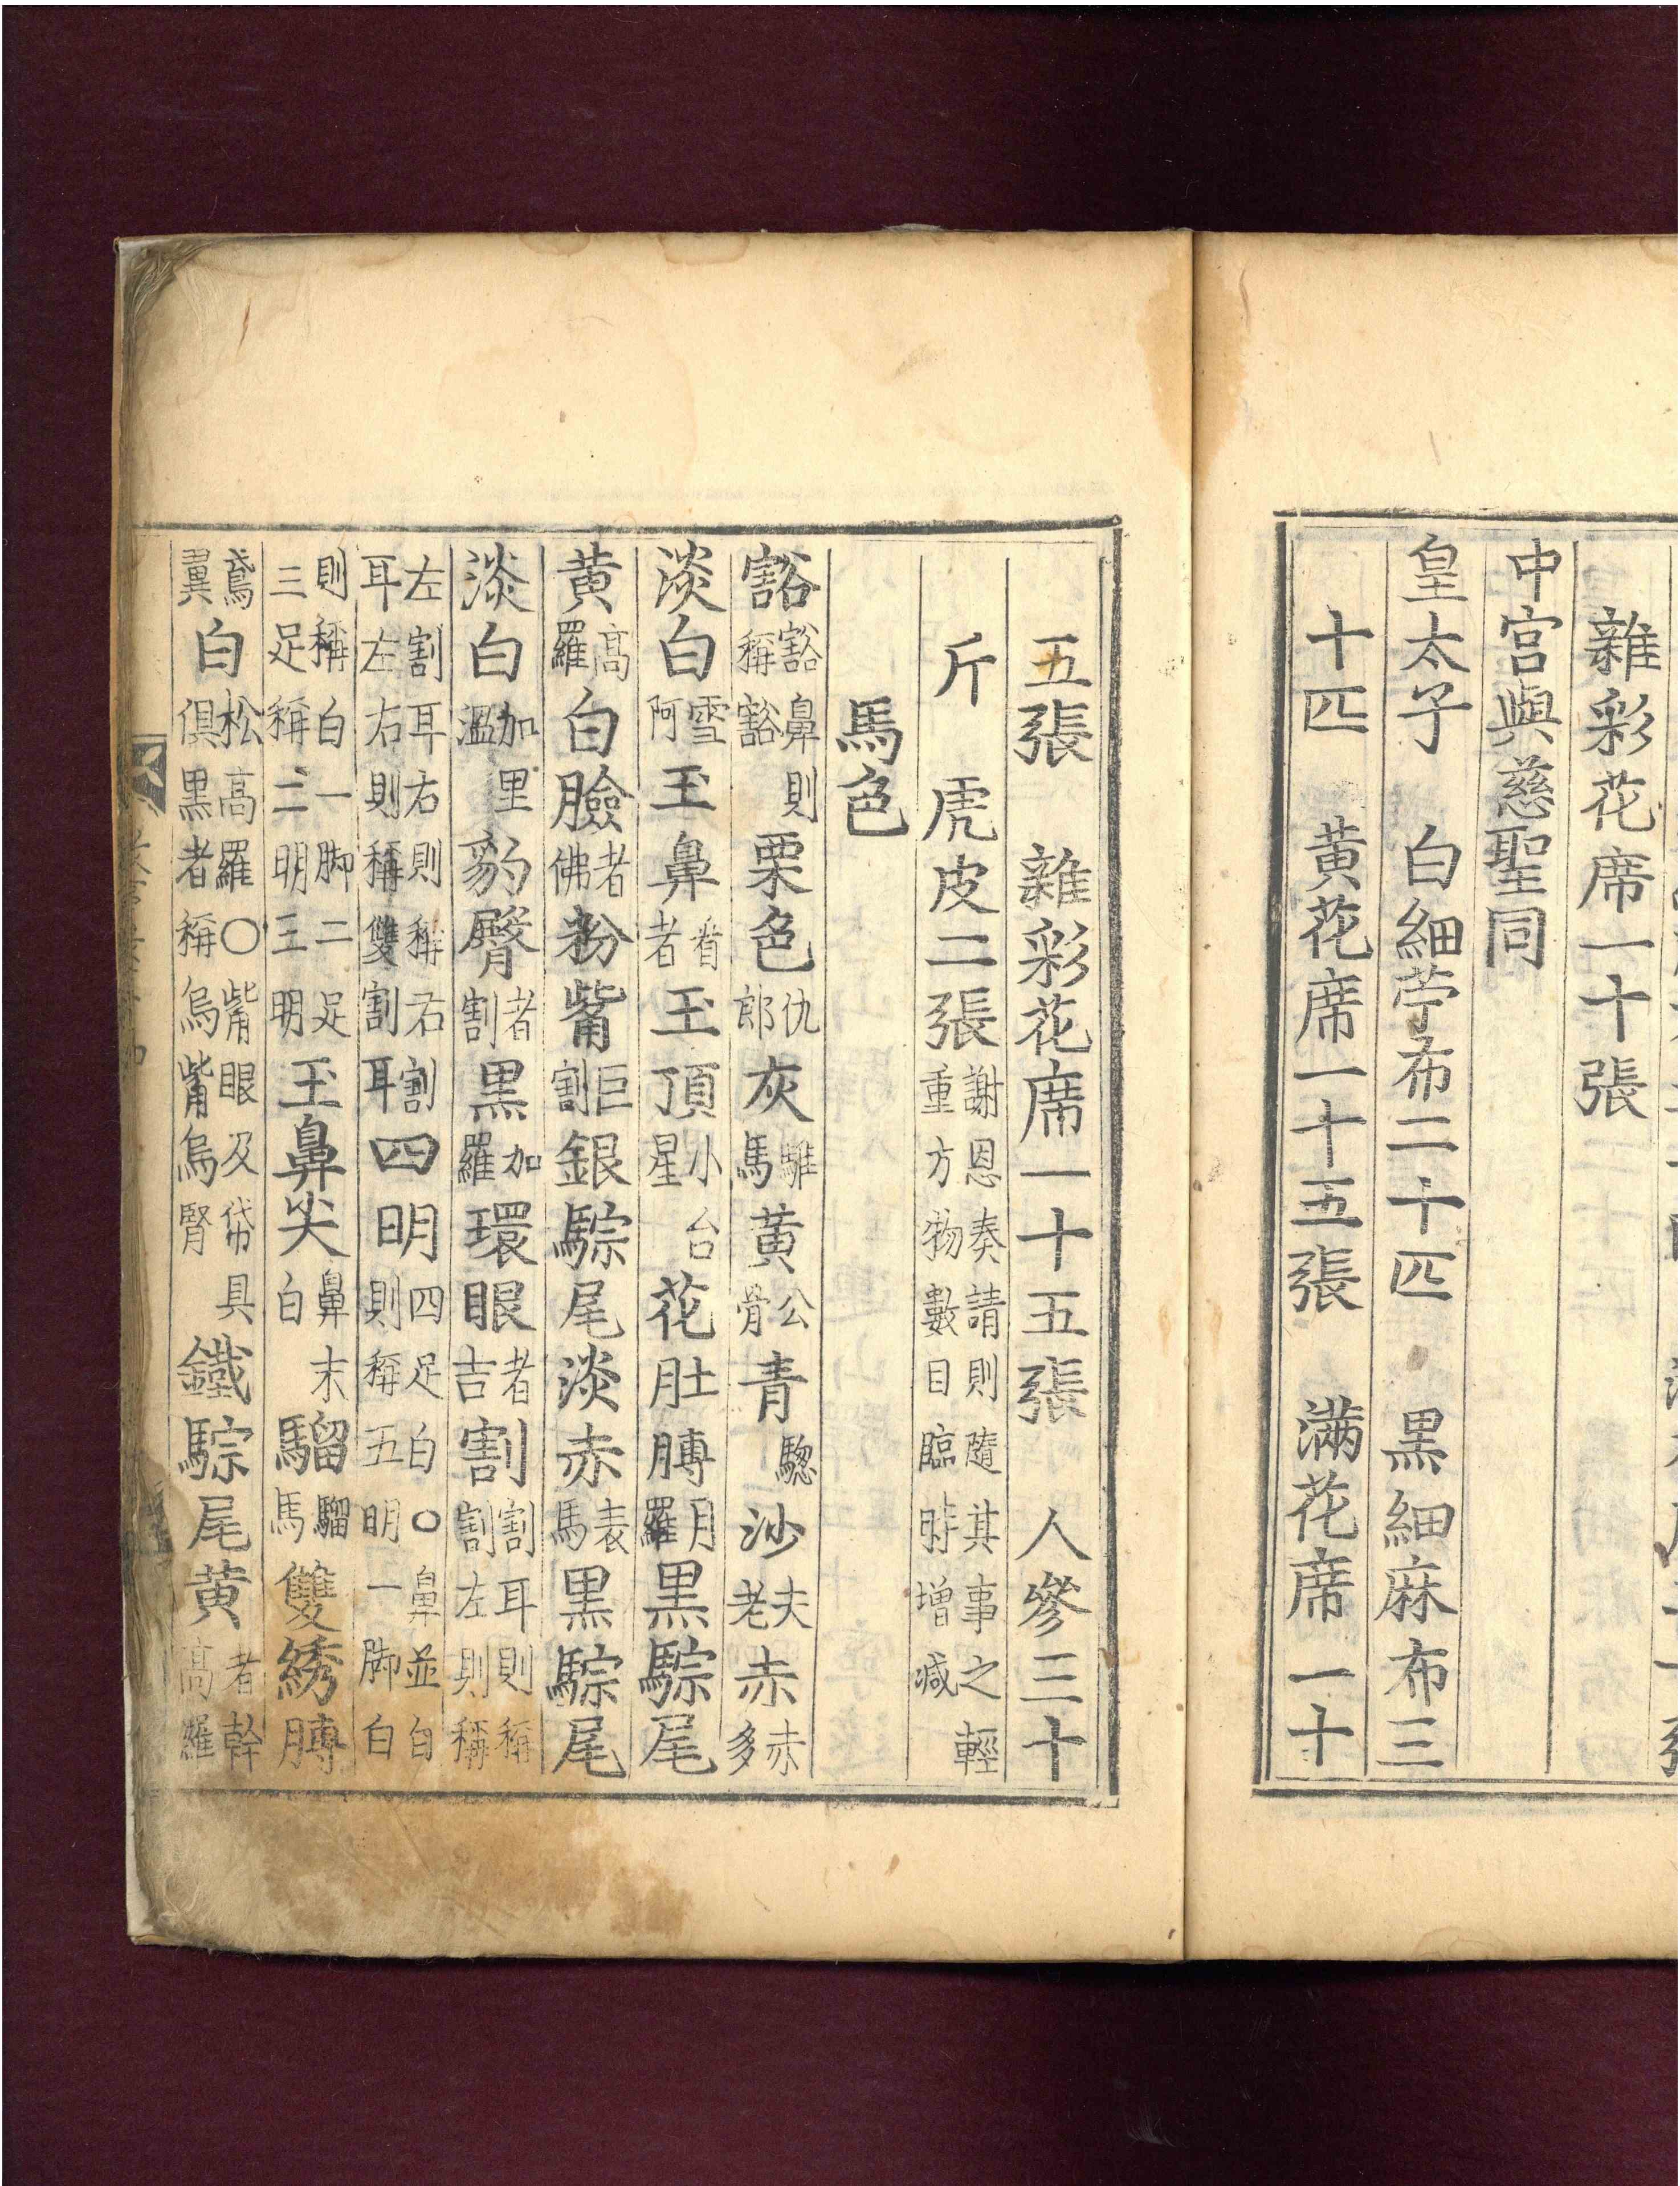 雜彩花席一十張
中宮與慈聖同
皇太子 白細苧布二十匹 黒細麻布三
十匹 黃花席一十五張 滿花席一十
五張 雜彩花席一十五張 人參三十
斤 虎皮二張 謝恩奏請則隨其事之輕重方物數目臨時增减
馬色
豁 豁鼻則稱豁 栗色 仇郎 灰 騅馬 黃 公骨 青 驄 沙 夫老 赤 赤多
淡白 雪阿 玉鼻 看者 玉頂 小台星 花肚膊 月羅 黒騣尾
黃 高羅 白臉 者佛 粉觜 巨割 銀騣尾 淡赤 表馬 黒騣尾
淡白 加里溫 豹臀 者割 黒 加羅 環眼 者吉 割 割耳則稱割左則稱
左割耳右則稱右割耳左右則稱雙割耳 四明 四足白則稱五明○鼻並白一脚白
則稱白一脚二足三足稱二明三明 玉鼻尖 鼻末白 騮 騮馬 雙綉膊
鳶翼 白 松高羅○觜眼及帒具俱黒者稱烏觜烏腎 鐵騣尾黃 者幹高羅